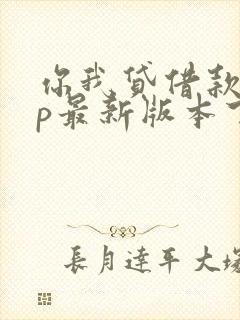 你我贷借款
p最新版本
長月達平大塚